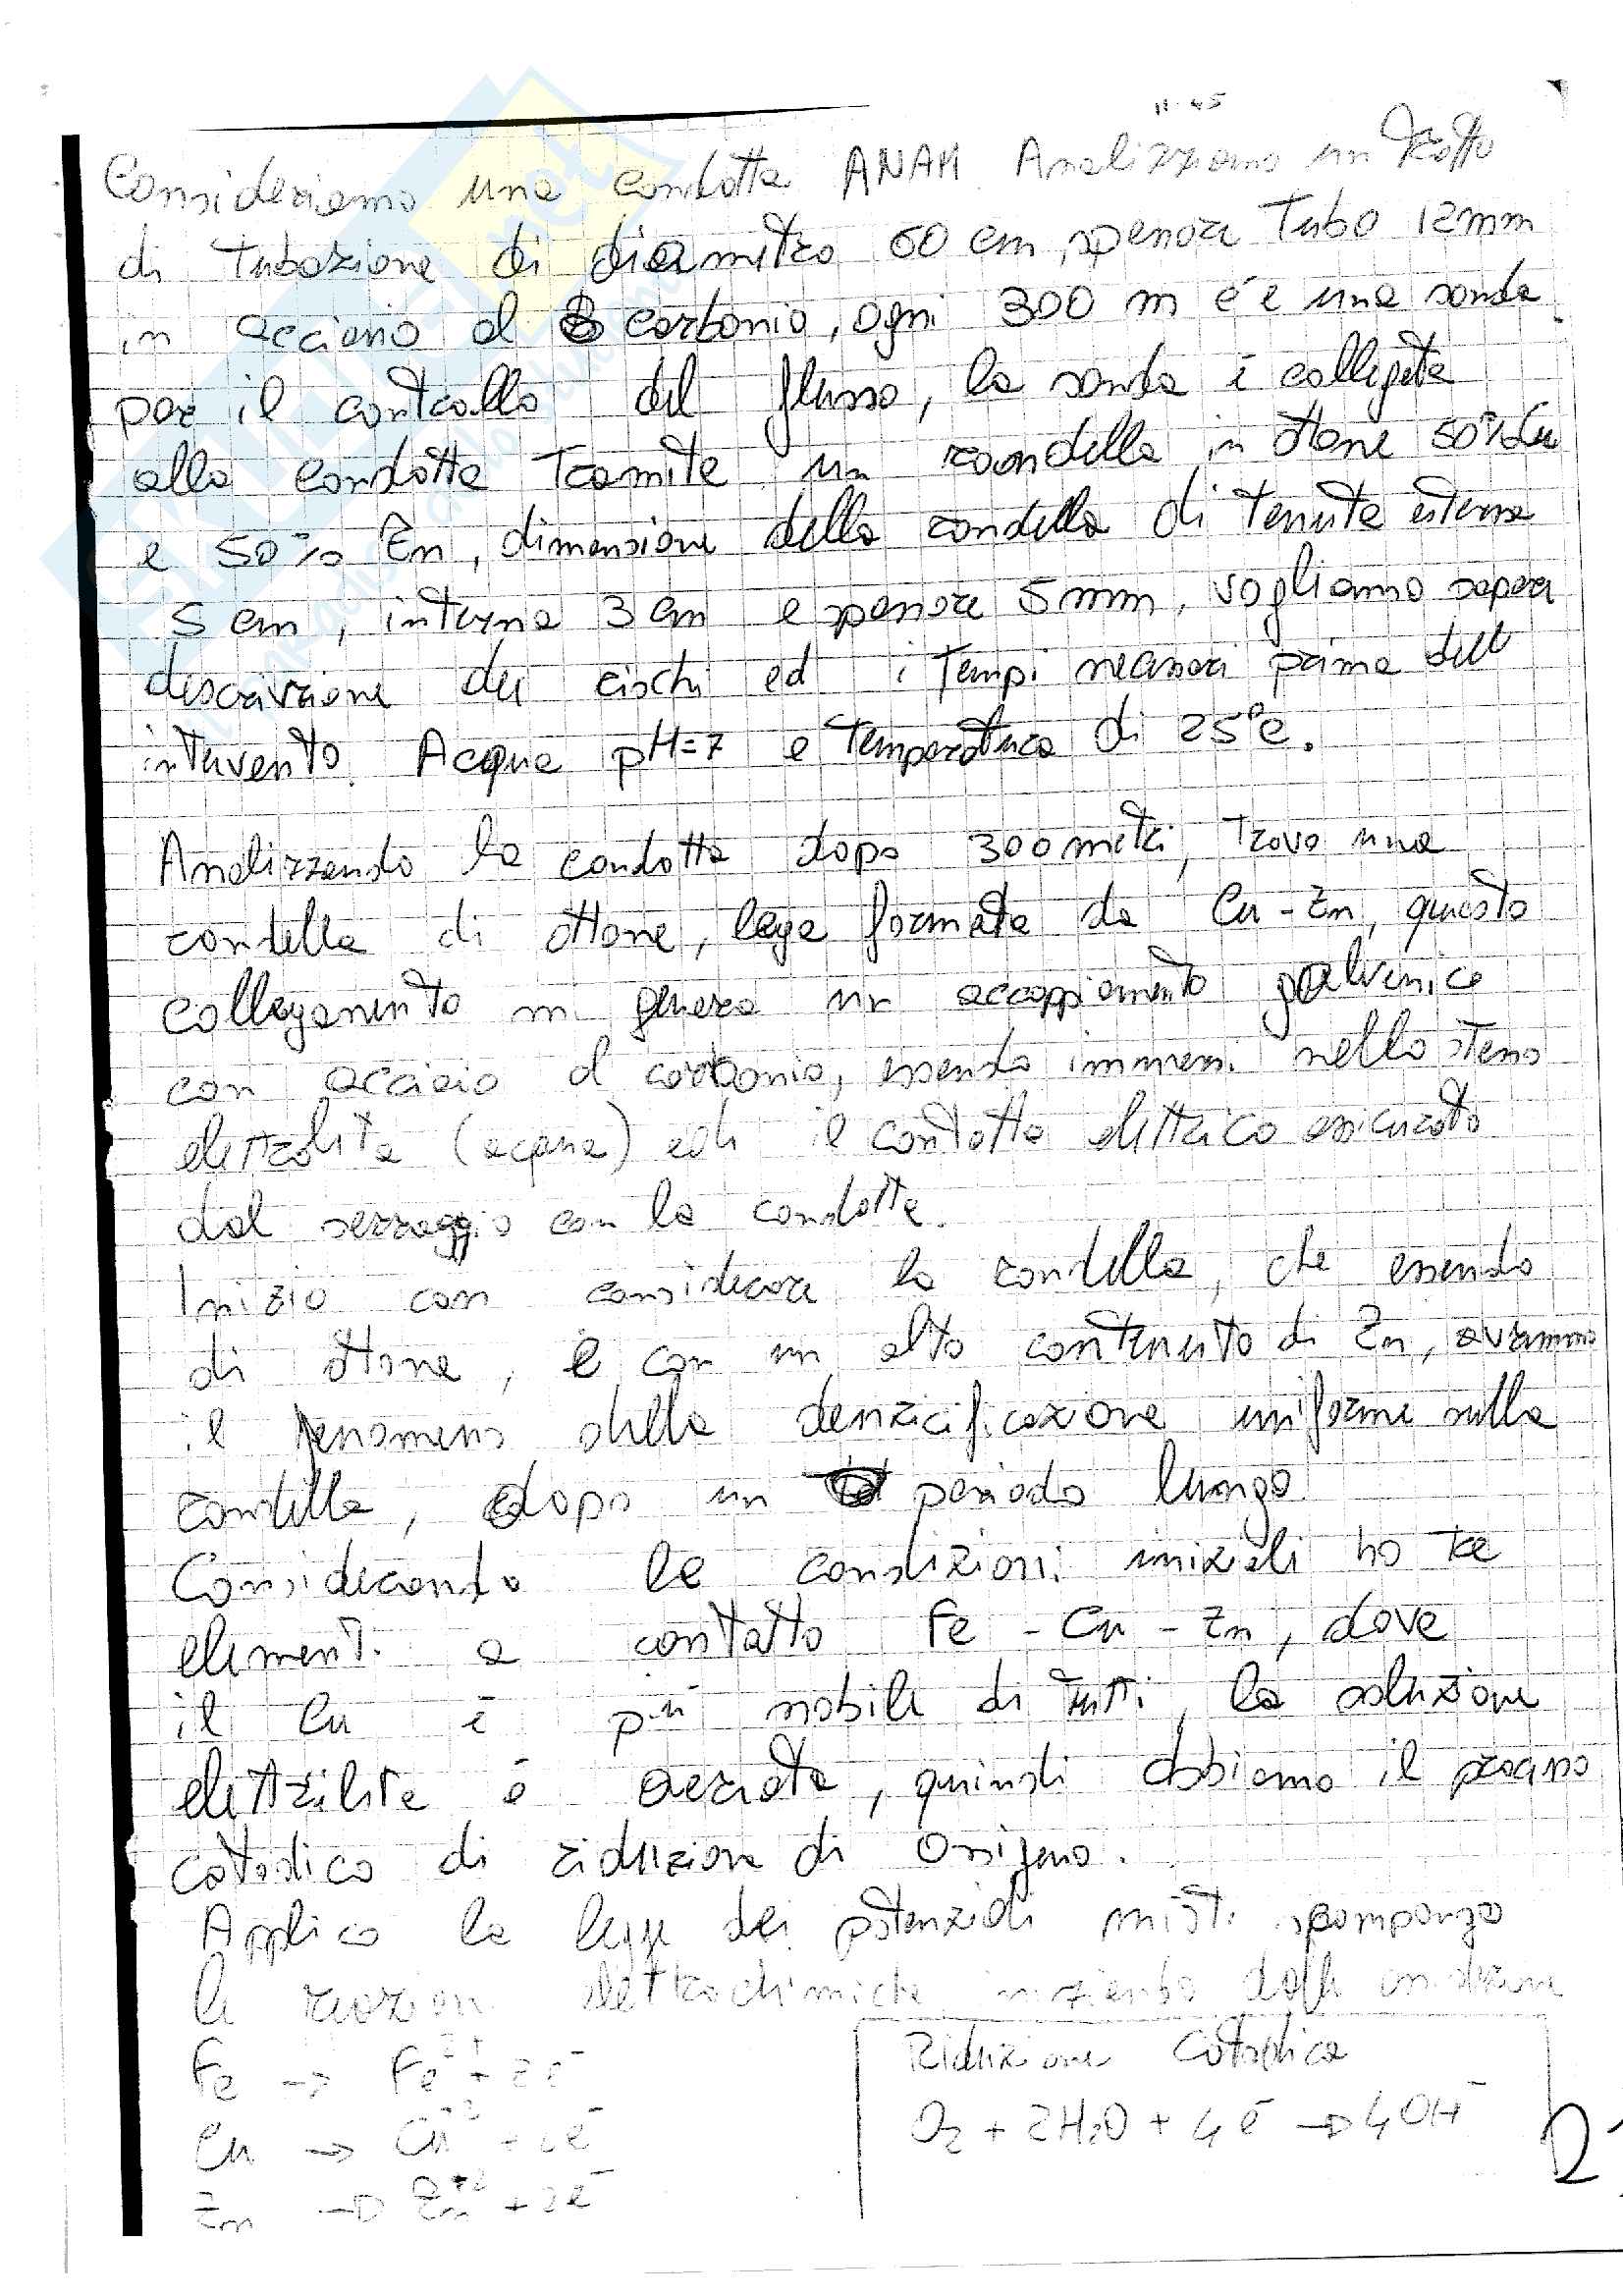 11.45
Consideriamo una condotta ANAM. Analizziamo un tratto
di tubazione di diametro 60 cm, spessore tubo 12mm
in acciaio al carbonio, ogni 300 m c'è una sonda
per il controllo del flusso, la sonda è collegata
alla condotta tramite un rondella in ottone 50% Cu
e 50% Zn, dimensione della rondella di tenuta esterna
5 cm, interna 3 cm e spessore 5mm, vogliamo sapere
descrizione dei rischi ed i tempi necessari prima dell
intervento. Acqua pH=7 e temperatura di 25°C.
Analizzando la condotta dopo 300 metri, trovo una
rondella di ottone, lega formata da Cu-Zn, questo
collegamento mi genera un accoppiamento galvanico
con acciaio al carbonio, essendo immersi nello stesso
elettrolita (acqua) ed il contatto elettrico assicurato
dal serraggio con la condotta.
Inizio con considerare la rondella, che essendo
di ottone, e con un alto contenuto di Zn, avremmo
il fenomeno della denzicificazione uniforme sulla
rondella, dopo un periodo lungo.
Considerando le condizioni iniziali ho tre
elementi a contatto Fe - Cu - Zn, dove
il Cu è più nobile di tutti, la soluzione
elettrilita è aerata, quindi abbiamo il processo
catodico di riduzione di ossigeno.
Applico la legge dei potenziali misti scomponga
le reazioni elettrochimiche iniziando dalle anodiche
Fe → Fe²⁺ + 2e⁻
Cu → Cu⁺² + 2e⁻
Zn → Zn⁺² + 2e⁻
Riduzione Catodica
O₂ + 2H₂O + 4e⁻ → 4OH⁻